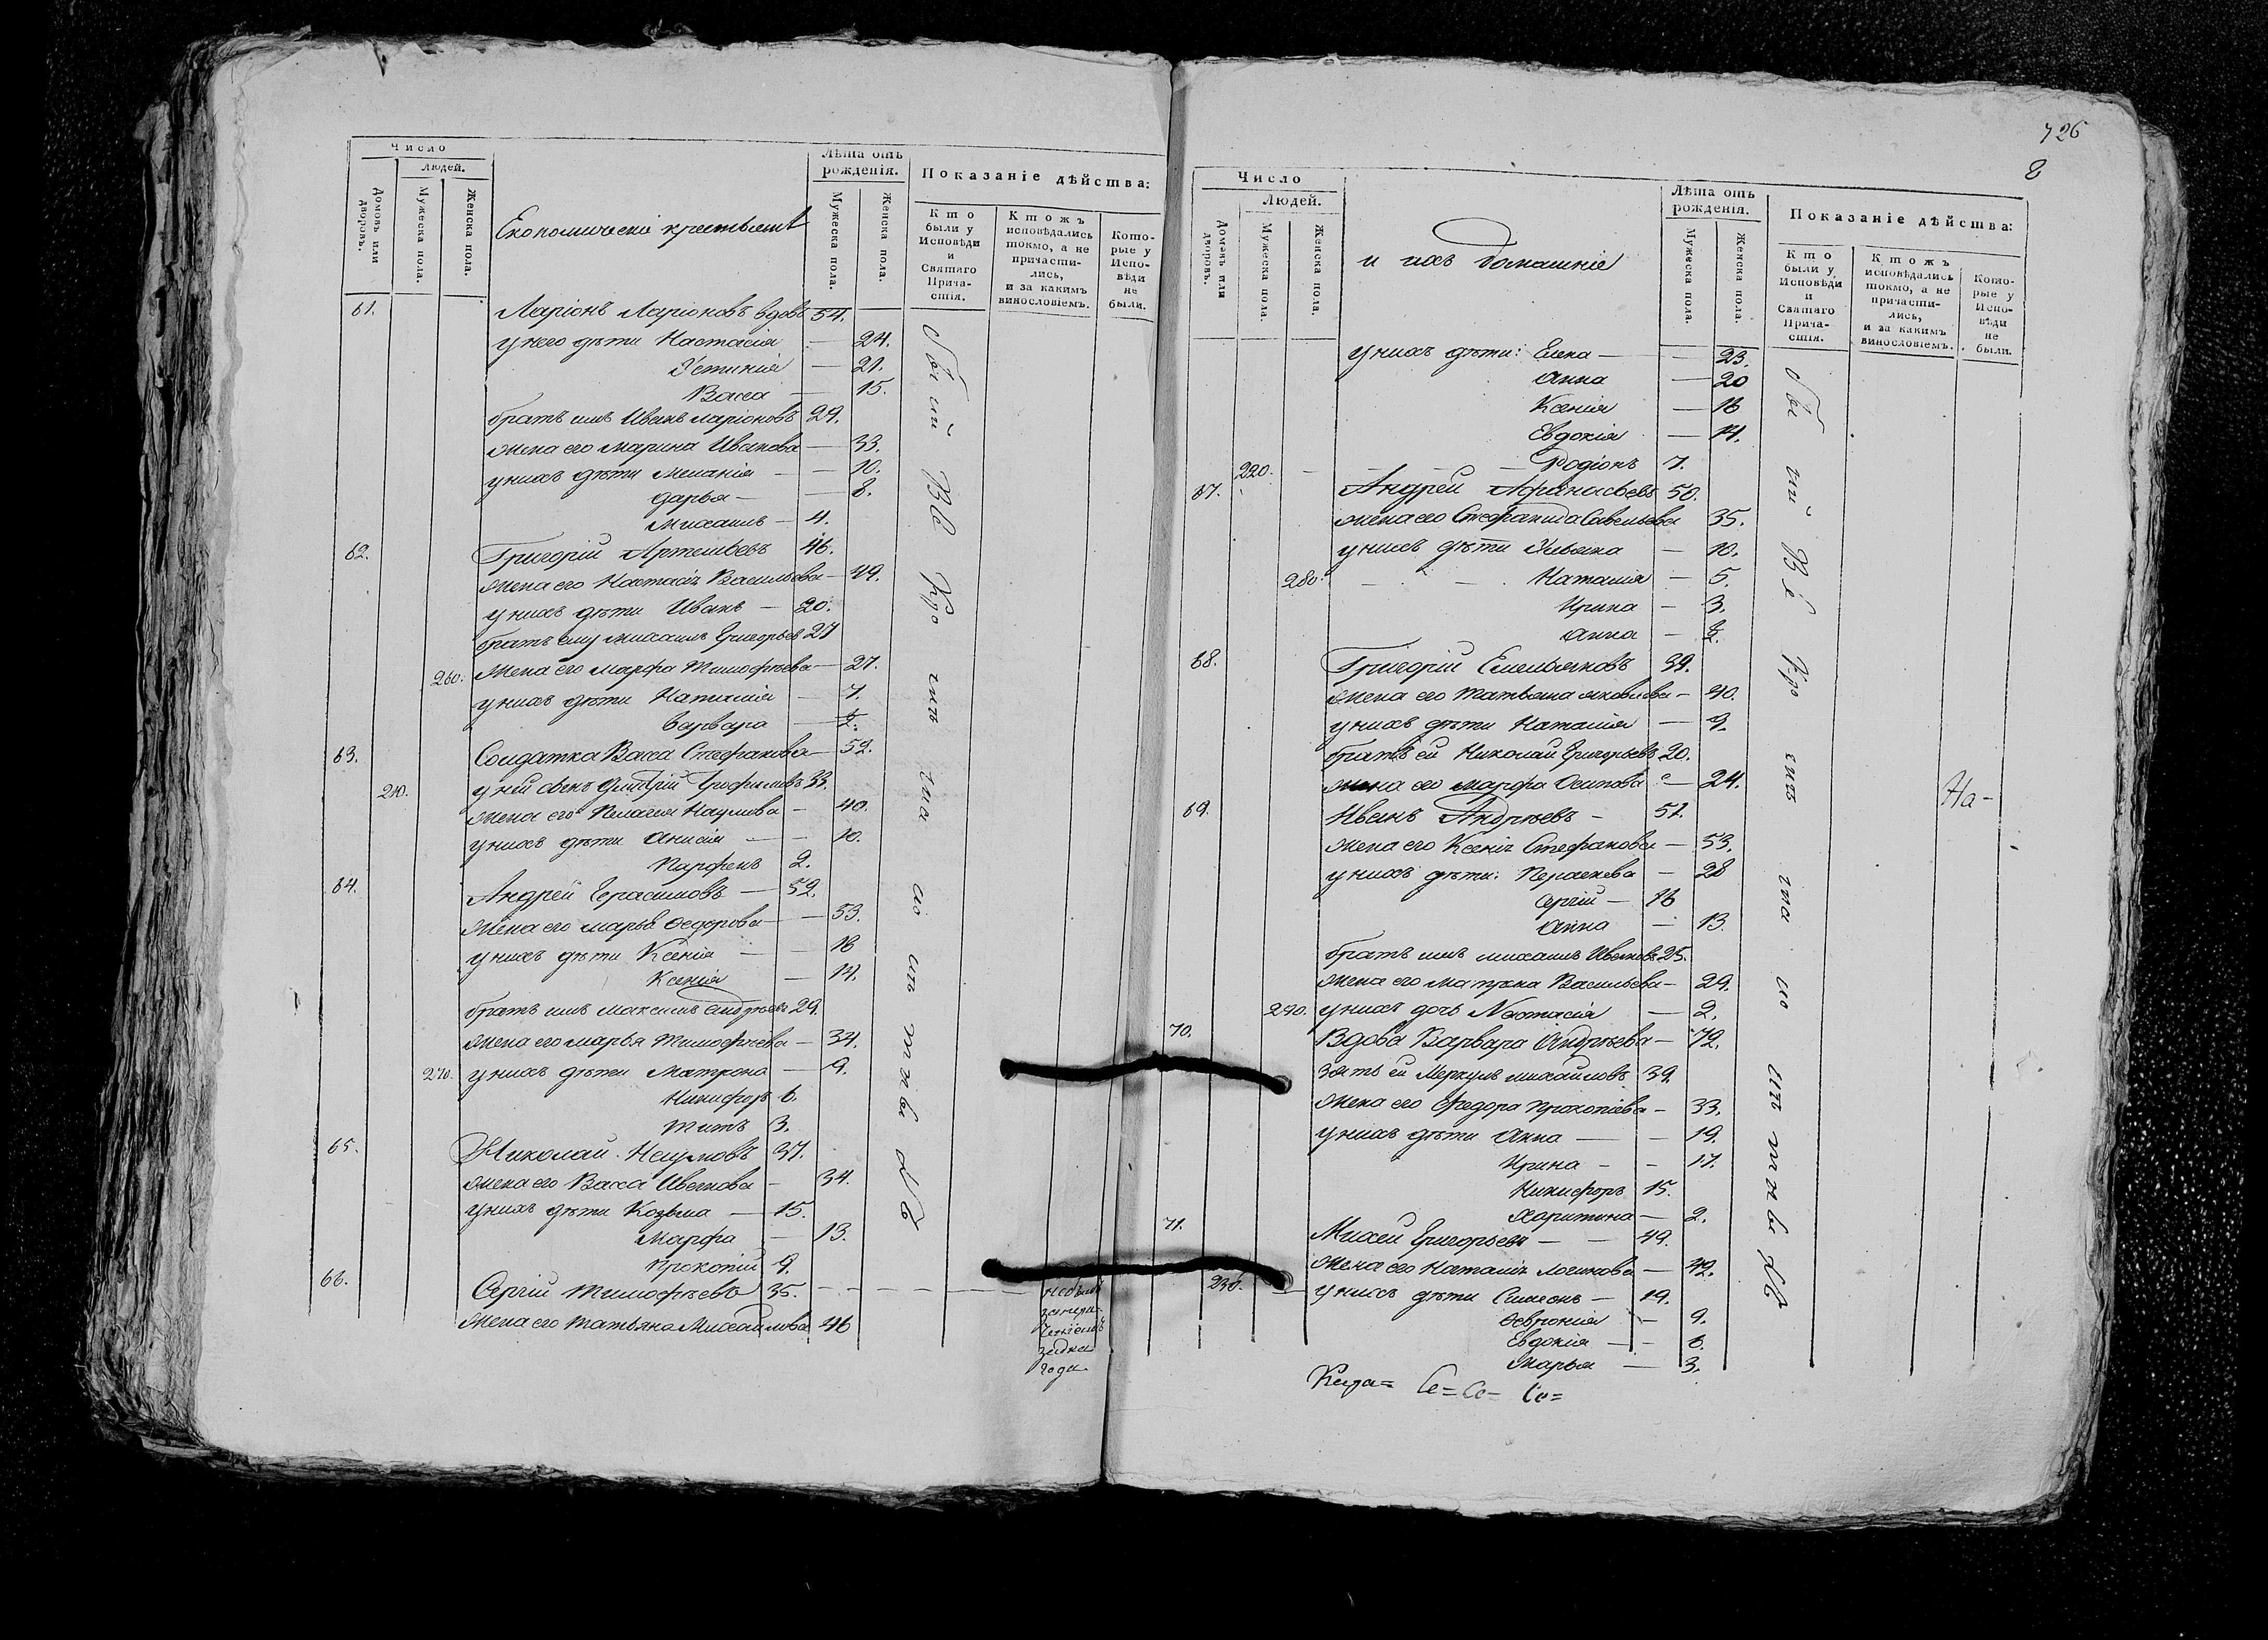 Число
Людей.
Домовъ или дворовъ.
Мужеска пола.
Женска пола.
Економическіе крестьяне
Лѣта отъ рожденія.
Мужеска пола.
Женска пола.
Показаніе дѣйства:
Кто были у Исповѣди и Святаго Причастія.
Ктожъ исповѣдались токмо, а не причастились, и за какимъ винословіемъ.
Которые у Исповѣди не были.
61. Ларіонъ Ларіоновъ вдовъ 54.
у него дѣти Настасія — 24.
Устинія — 21.
Васса — 15.
братъ имъ Иванъ Ларіоновъ 29.
жена его Марина Иванова — 33.
у нихъ дѣти Меланія — 10.
Дарья — 8.
Михаилъ — 4.
62. Григорій Артемьевъ 46.
жена его Настасія Васильева — 49.
у нихъ дѣти Иванъ — 20.
братъ ему Михаилъ Григорьев 27
260. жена его Марфа Тимофѣева — 27.
у нихъ дѣти Наталія — 7.
Варвара — ½.
63. Солдатка Васса Стефанова — 52.
210. у ней сынъ Дмитрій Трофимовъ 33.
жена его Пелагея Наумова — 40.
у нихъ дѣти Анисія — 10.
Парфенъ 2.
64. Андрей Герасимовъ — 52.
жена его Марья Ѳедорова — 53.
у нихъ дѣти Ксенія — 16
Ксенія — 14.
братъ имъ Максимъ Андреевъ 29.
жена его Марья Тимофѣева — 34.
270. у нихъ дѣти Матрона — 9.
Никифоръ 6.
Титъ 3.
65. Николай Наумовъ 37.
жена его Васса Иванова — 34.
у нихъ дѣти Козьма — 15.
Марфа — 13.
Прокопій 9.
66. Сергій Тимофѣевъ 35. — — — — — не былъ
жена его Татьяна Михайлова 46
года
726
8
Число
Людей.
Домовъ или дворовъ.
Мужеска пола.
Женска пола.
и ихъ домашніе
Лѣта отъ рожденія.
Мужеска пола.
Женска пола.
Показаніе дѣйства:
Кто были у Исповѣди и Святаго Причастія.
Ктожъ исповѣдались токмо, а не причастились, и за какимъ винословіемъ.
Которые у Исповѣди не были.
у нихъ дѣти: Елена — 23.
Анна — 20
Ксенія — 16
Евдокія — 14.
220. — Родіонъ 7.
67. Андрей Афанасьевъ 50.
жена его Стефанида Савельева 35.
у нихъ дѣти Ульяна — 10.
280. Наталія — 5.
Ирина — 3.
Анна — ½.
68. Григорій Емельяновъ 39.
жена его Татьяна Яковлева — 40.
у нихъ дѣти Наталія — 9.
братъ ей Николай Григорьевъ 20.
жена его Марфа Осипова — 24.
На-
69. Иванъ Андрѣевъ — 51.
жена его Ксенія Стефанова — 53.
у нихъ дѣти: Параскева — 28
Сергій — 16
Анна — 13.
братъ имъ Михаилъ Ивановъ 25.
жена его Матрена Васильева — 29.
290. у нихъ дочь Настасія — 2.
70. Вдова Варвара Андрѣева — 72.
зять ей Меркулъ Михайловъ 39.
жена его Ѳедора Прокопіева — 33.
у нихъ дѣти Анна — 19.
Ирина — 17.
Никифоръ 15.
Харитина — 2.
71. Михей Григорьевъ — 49.
жена его Наталія Логинова — 42.
230. у нихъ дѣти Симеонъ — 19.
Ѳевронія — 9.
Евдокія — 6.
Марья — 3.